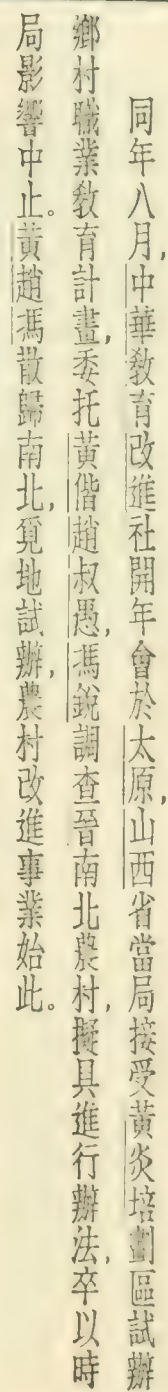 同年八月,中華敎育改進社開年會於太原,山西省當局接受黃炎培劃區試辦
鄉村職業敎育計畫,委托黃偕趙叔愚,馮銳調查晉南北農村,擬具進行辦法,卒以時
局影響中止。黃趙馮散歸南北,覓地試辦,農村改進事業始此。